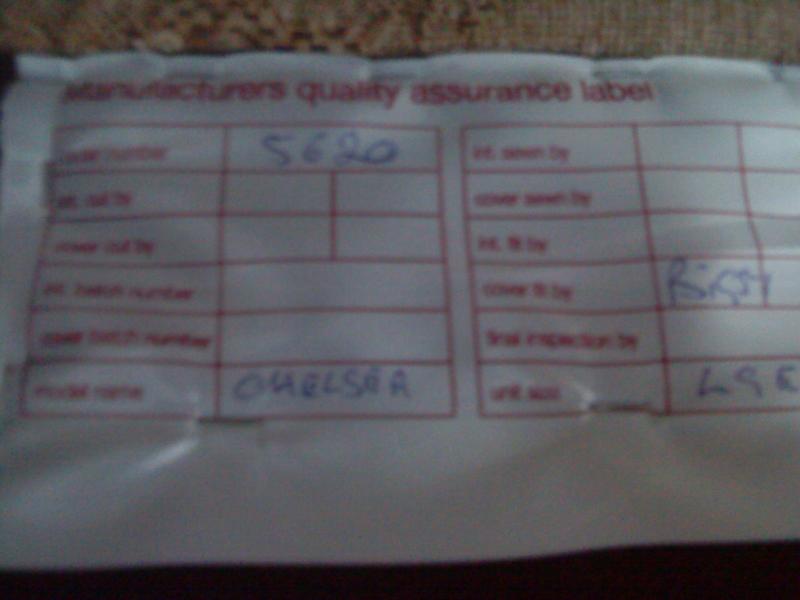 Manufacturers quality assurance label
order number 5620
int. cut by
cover cut by
int. batch number
cover batch number
model name CHELSEA
int. sewn by
cover sewn by
int. fit by
cover fit by
final inspection by
unit size LGE